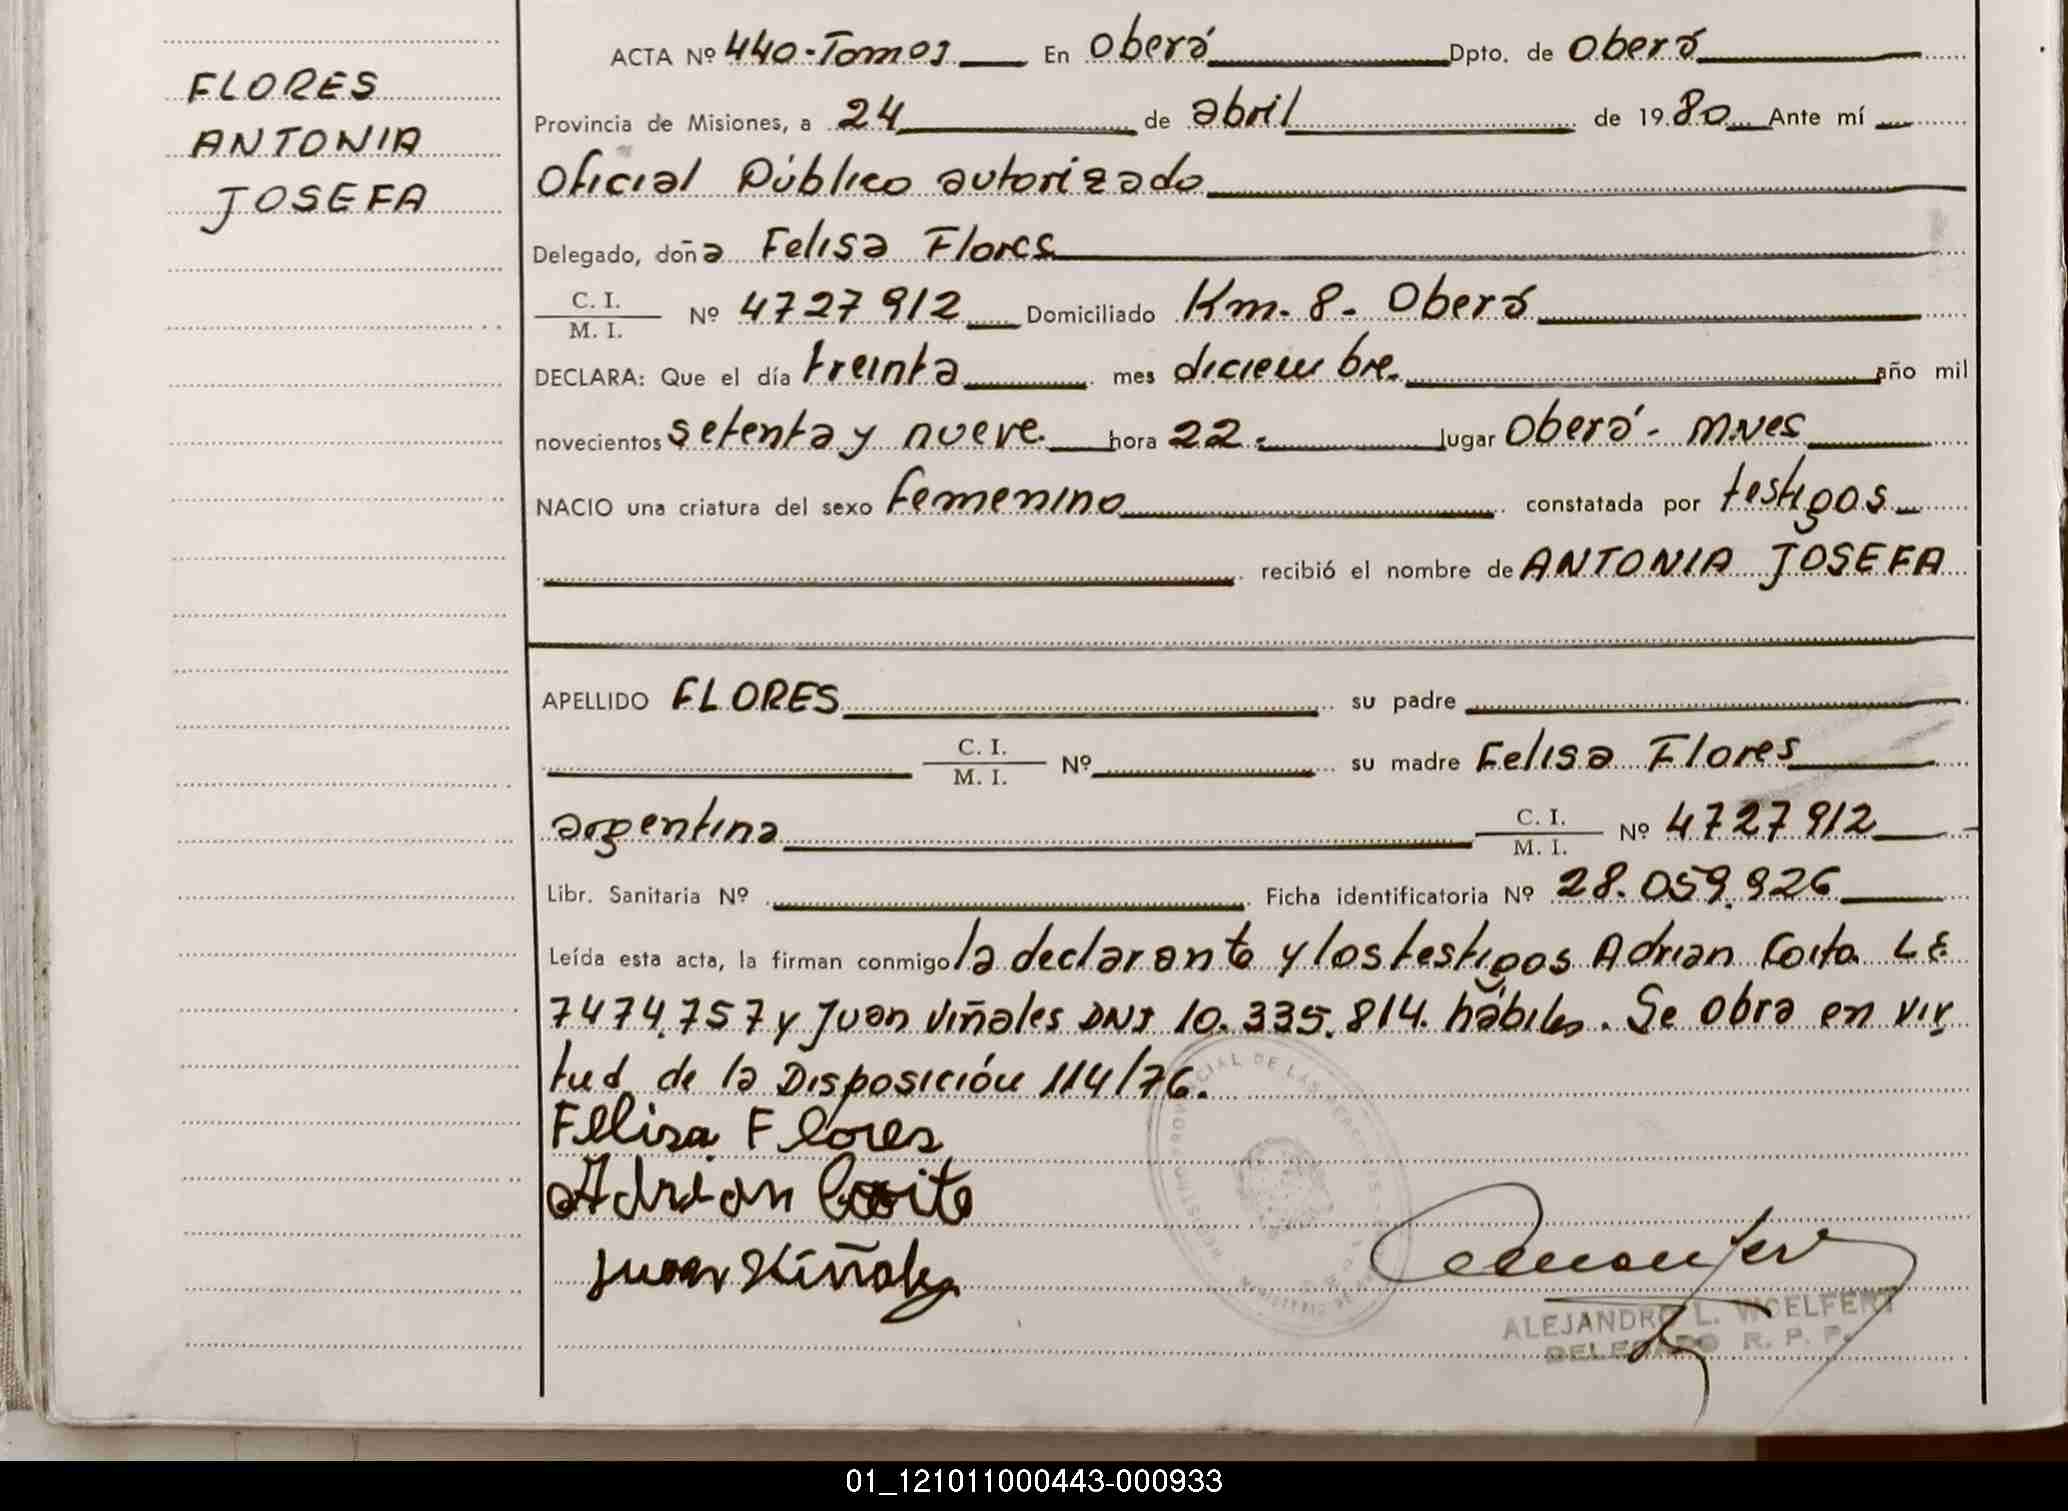 FLORES
ANTONIA
JOSEFA
ACTA Nº 440-Tomo I En Oberá Dpto. de Oberá
Provincia de Misiones, a 24 de abril de 1980 Ante mí
Oficial Público autorizado
Delegado, doña Felisa Flores
C. I. / M. I. Nº 4727912 Domiciliado Km. 8- Oberá
DECLARA: Que el día treinta mes diciembre. año mil
novecientos setenta y nueve. hora 22.- lugar Oberá - Mnes
NACIO una criatura del sexo femenino constatada por testigos
recibió el nombre de ANTONIA JOSEFA
APELLIDO FLORES su padre
C. I. / M. I. Nº su madre Felisa Flores
argentina C. I. / M. I. Nº 4727912
Libr. Sanitaria Nº Ficha identificatoria Nº 28.059.926
Leída esta acta, la firman conmigo la declarante y los testigos Adrian Coito L E
7474.757 y Juan Viñales DNI 10.335.814. hábiles. Se obra en vir
tud de la Disposición 114/76.
Felisa Flores
Adrian Coito
Juan Viñales
ALEJANDRO L. WOELFERT
DELEGADO R. P. P.
01_121011000443-000933